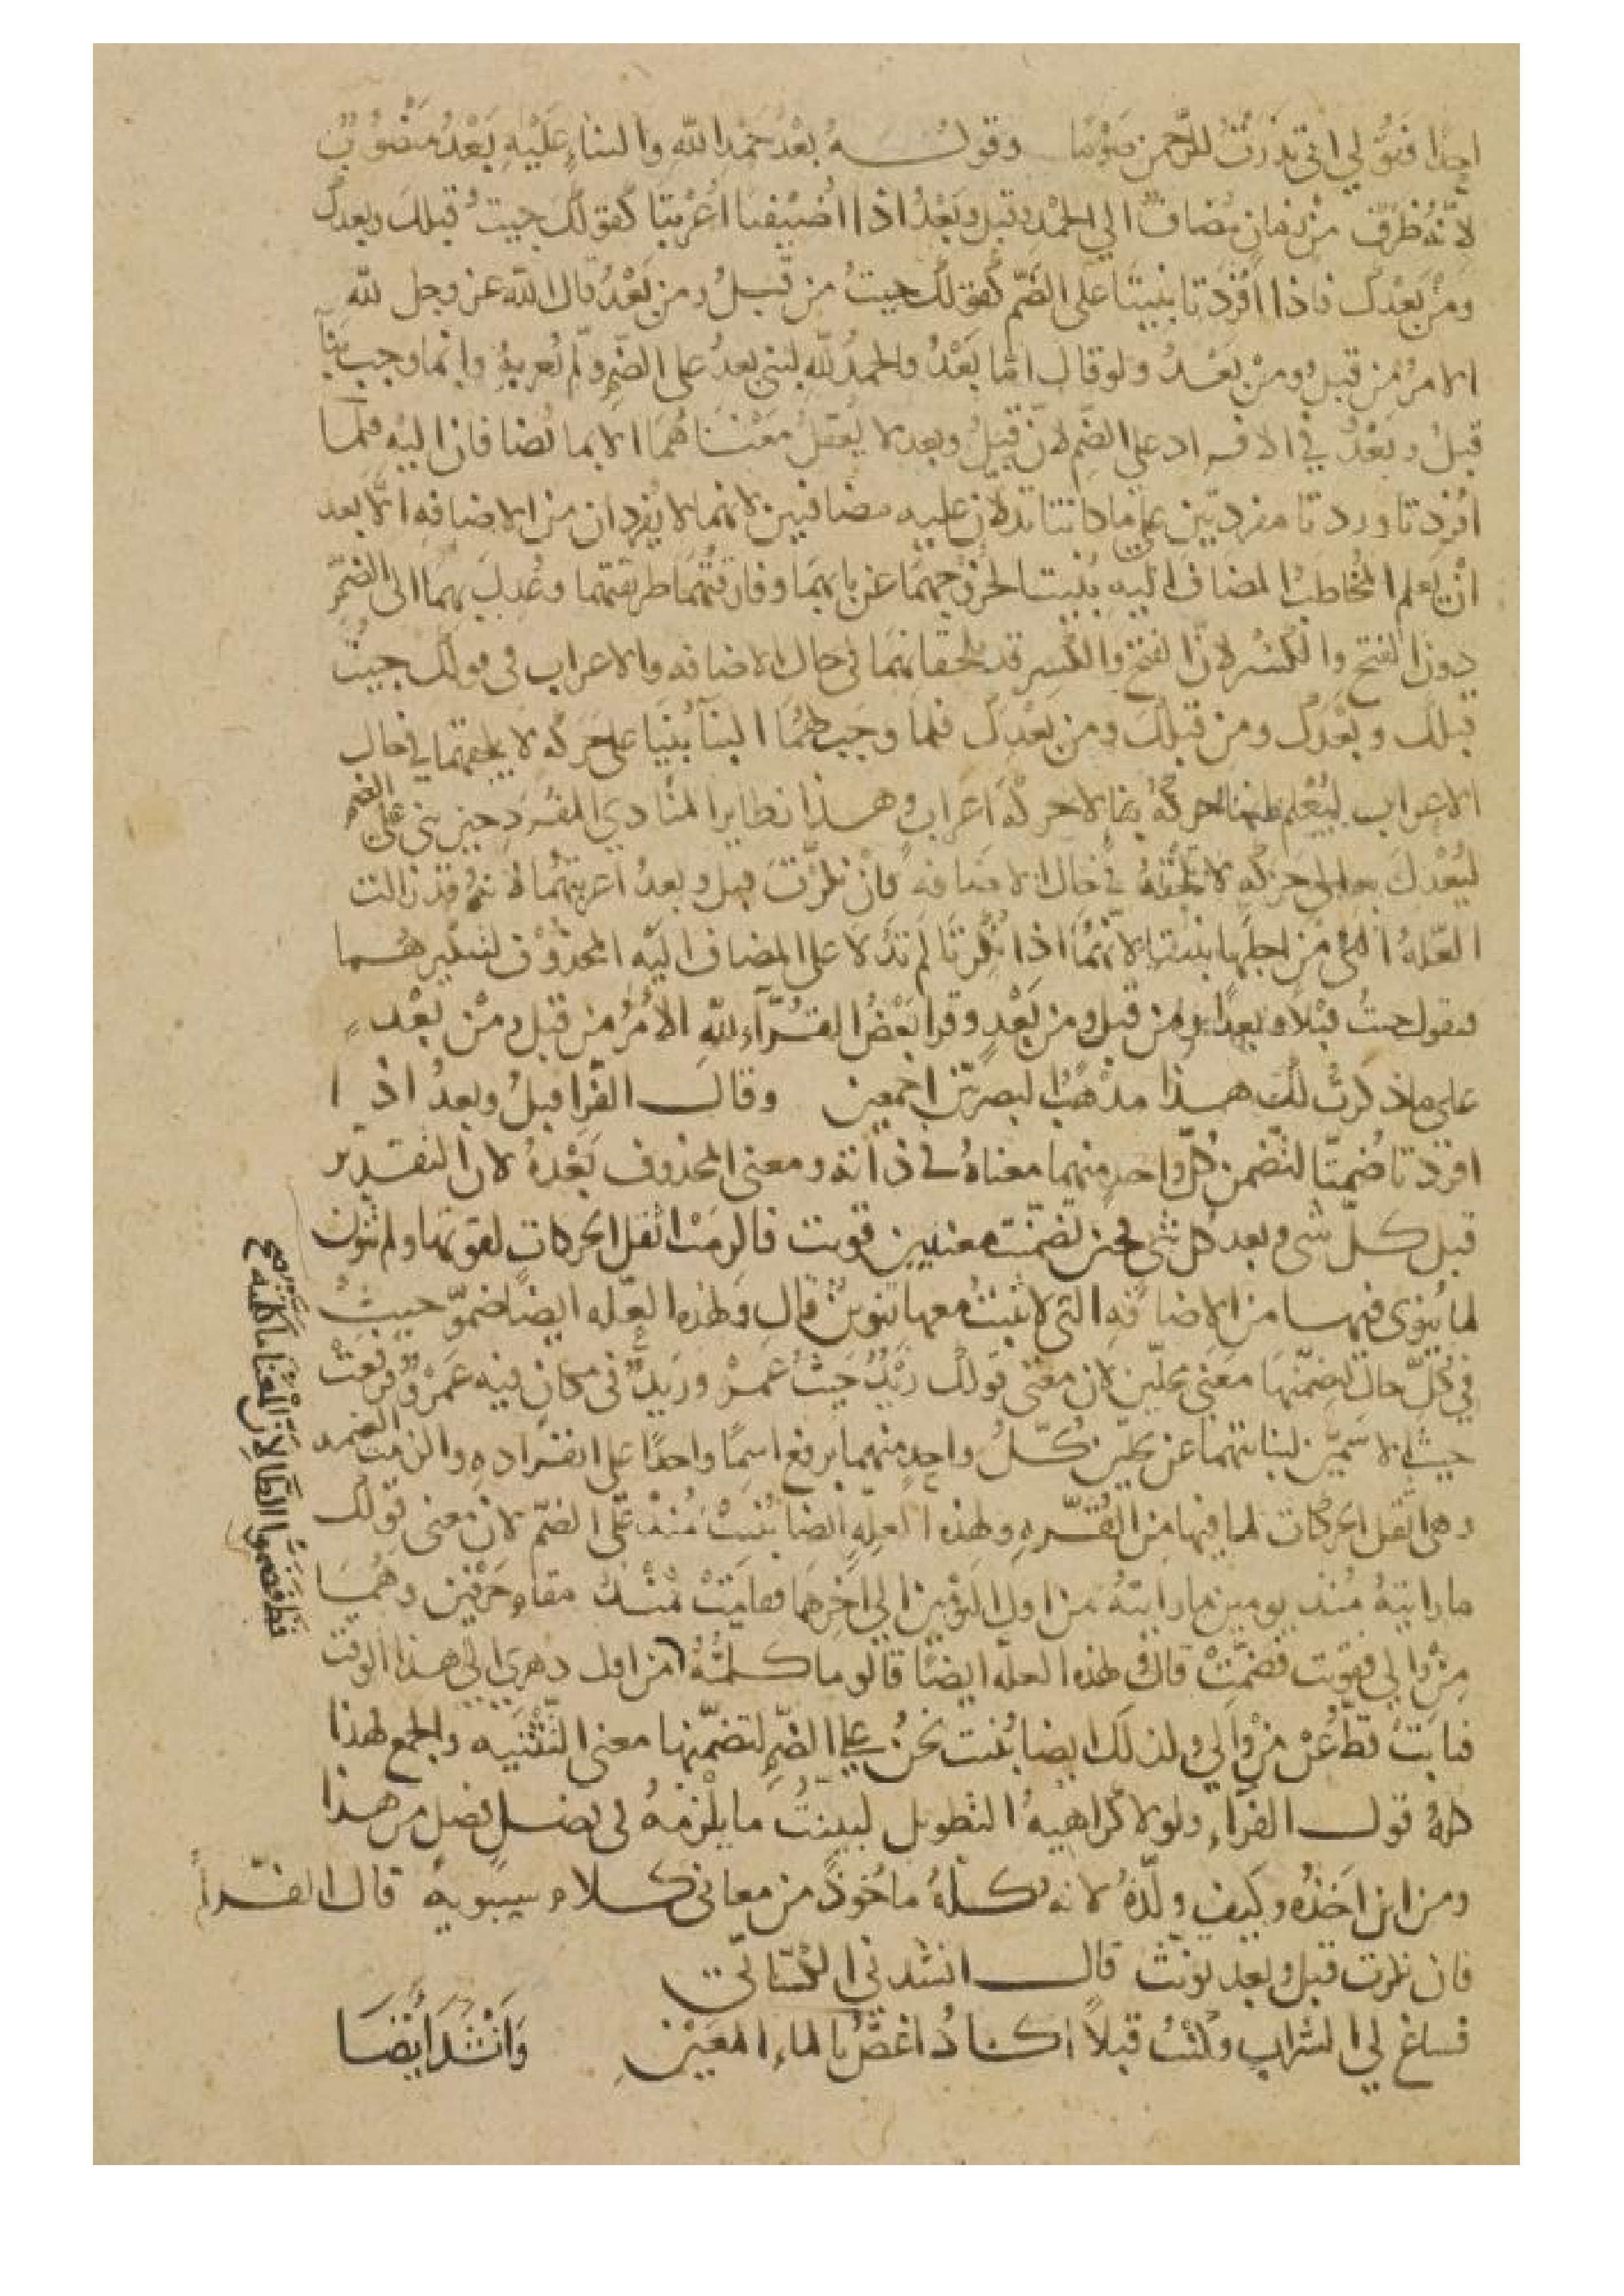 احدا فقولي اني نذرت للرحمن صوما وقولـــه بعد حمد الله والثناء عليه بعد منصوب
لانه ظرف من زمان مضاف الي الحمد وقبل وبعد اذا اضيفتا اعربتا كقولك جيت قبلك وبعدك
ومن بعدك فاذا افردتا بنيتا على الضم كقولك جيت من قبل ومن بعد قال الله عز وجل لله
الامر من قبل ومن بعد ولو قال اما بعد والحمد لله لبني بعد على الضم ولم نعربه وانما وجب بنآ
قبل وبعد في الافراد على الضم لان قبل وبعد لا يعقل معناهما الا بما تضافان اليه فلما
افردتا وردتا مفردتين على ما كانتا تدلان عليه مضافتين لانهما لا يفردان من الاضافه الا بعد
ان يعلم المخاطب المضاف اليه بنيتا لخروجهما عن بابهما ومفارقتهما طريقتهما وعدل بهما الى الضم
دون الفتح والكسر لان الفتح والكسر قد يلحقانهما في حال الاضافه والاعراب في قولك جيت
قبلك وبعدك ومن قبلك ومن بعدك فلما وجب لهما البنآ بنيا على حركه لا تلحقهما في حال
الاعراب ليعلم انها حركة بنا لا حركة اعراب وهذا نظاير المنادي المفرد حين بني على الضم
ليعدل به الى حركه لا تلحقه في حال الاضافه فان نكرت قبل وبعد اعربتهما لانه قد زالت
العله التي من اجلها بنيتا لانهما اذا نكرتا لم تدلا على المضاف اليه المحذوف لتنكيرهما
فتقول جيت قبلا وبعدا ومن قبل ومن بعد وقرا بعض القرآء لله الامر من قبل ومن بعد
على ما ذكرت لك هذا مذهب البصريين اجمعين وقال الفرا قبل وبعد اذا
افردتا ضمتا لتضمن كل واحد منهما معناه في ذاته ومعنى المحذوف بعده لان التقدير
قبل كل شي وبعد كل شي فحين تضمنت معنيين قويت فالزمت اثقل الحركات لقوتها ولم تنون
لما ينوى فيها من الاضافه التي لا يثبت معها تنوين قال ولهذه العله ايضا ضمو حيث
في كل حال لتضمنها معنى محلين لان معنى قولك زيد حيث عمرو زيد في مكان فيه عمرو فرفعت
حيث الاسمين لنيابتهما عن محلين كل واحد منهما يرفع اسما واحدا على انفراده والزمت الضمه
وهي اثقل الحركات لما فيها من القوه ولهذه العله ايضا بنيت منذ على الضم لان معنى قولك
ما رايته منذ يومين ما رايته من اول اليومين الى اخرهما فقامت منذ مقام حرفين وهما
من والي فقويت فضمت قال ولهذه العله ايضا قالو ما كلمته من اول دهري الى هذا الوقت
فنابت قط عن من والي ولذلك ايضا بنيت نحن على الضم لتضمنها معنى التثنيه والجمع فهذا
كله قول الفراء ولولا كراهية التطويل لبينت ما يلزمه في فصل فصل من هذا
ومن اين اخذه وكيف ولده لانه كله ماخوذ من معاني كلام سيبويه قال الفراء
فان نكرت قبل وبعد نونت قال انشدني الكسائي
فساغ لي الشراب وكنت قبلا اكاد اغص بالماء المعين وانشد ايضا
قط فضموا الطا لان المعنا ما كلمته صح